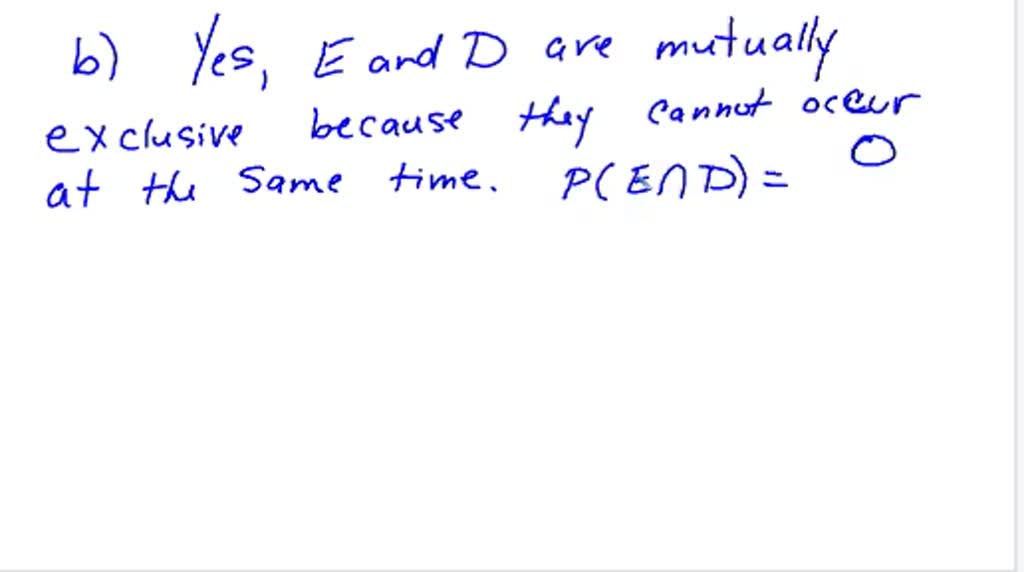 b) Yes, E and D are mutually
exclusive because they cannot occur
at the same time. P(E∩D) = 0